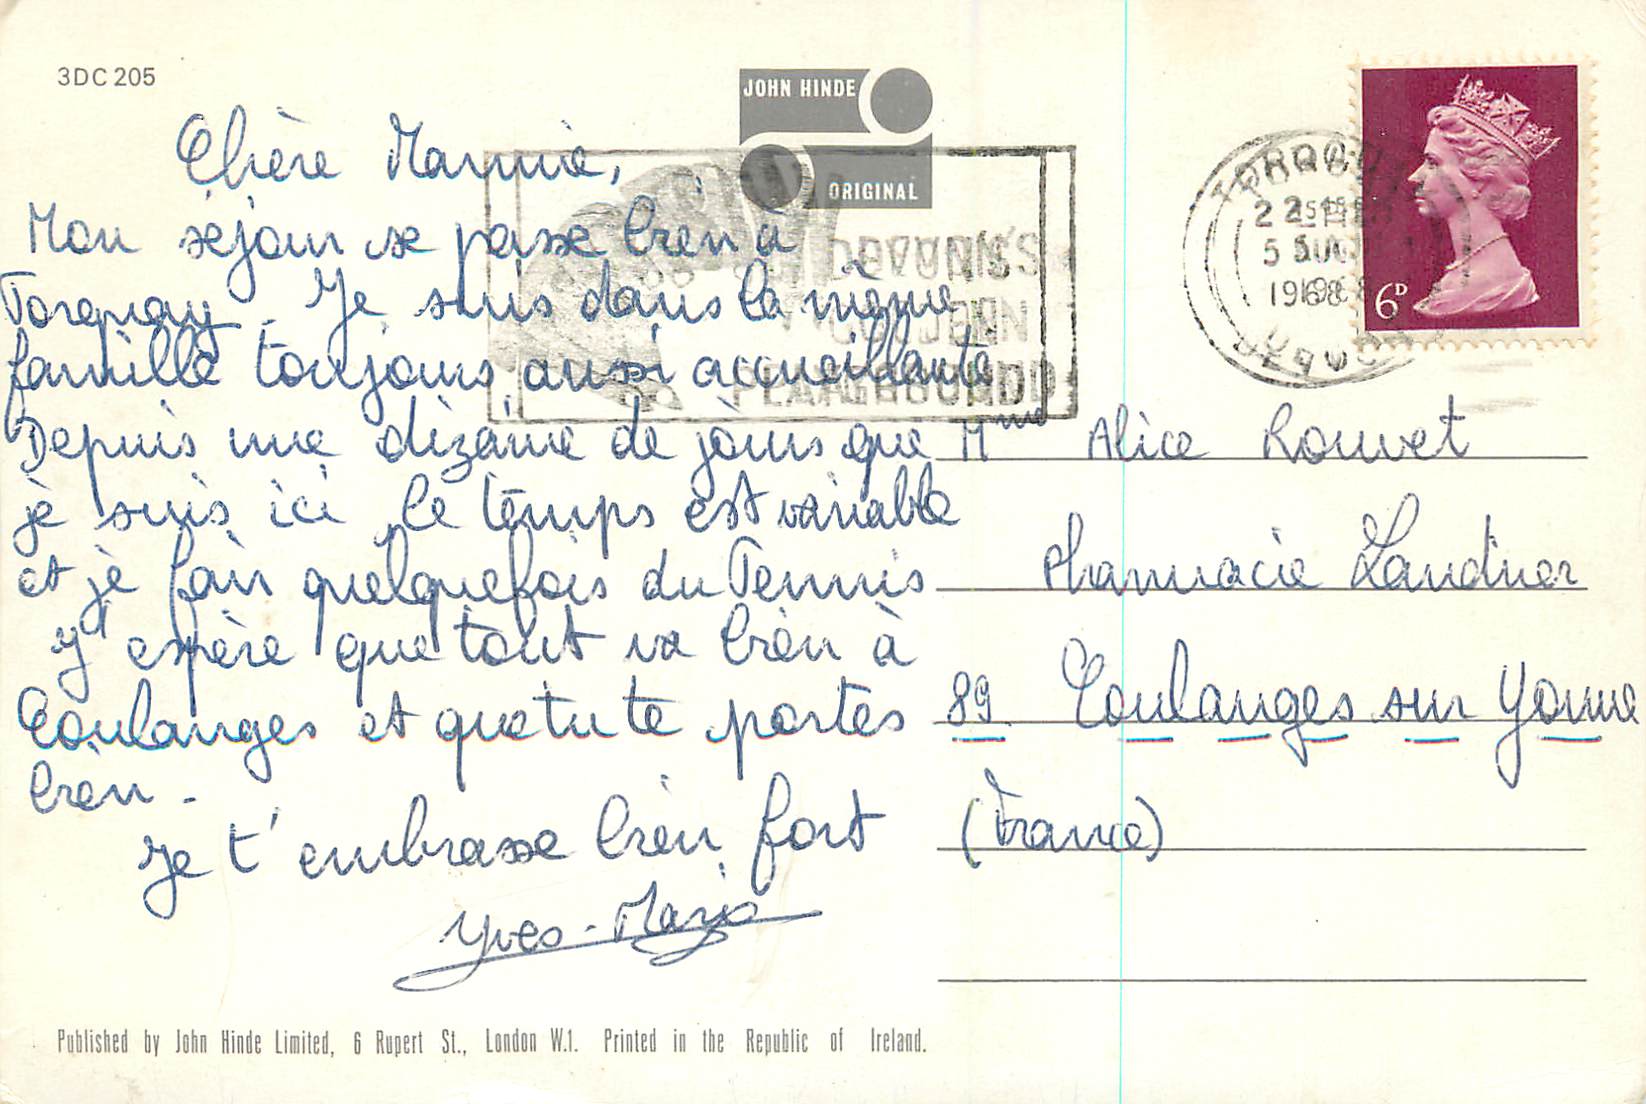 3DC 205
JOHN HINDE
ORIGINAL
Chère Mamie,
Mon séjour se passe bien à
Torquay. Je suis dans la même
famille toujours aussi accueillante
Depuis une dizaine de jours que
je suis ici le temps est variable
et je fais quelquefois du Tennis
J'espère que tout va bien à
Coulanges et que tu te portes
bien -
Je t'embrasse bien fort
Yves-Marie
DEVON'S
GOLDEN
PLAYGROUND
TORQUAY
1968
TORQUAY
6D
Mme Alice Rouvet
Pharmacie Landner
89 Coulanges sur Yonne
(France)
Published by John Hinde Limited, 6 Rupert St., London W.1. Printed in the Republic of Ireland.